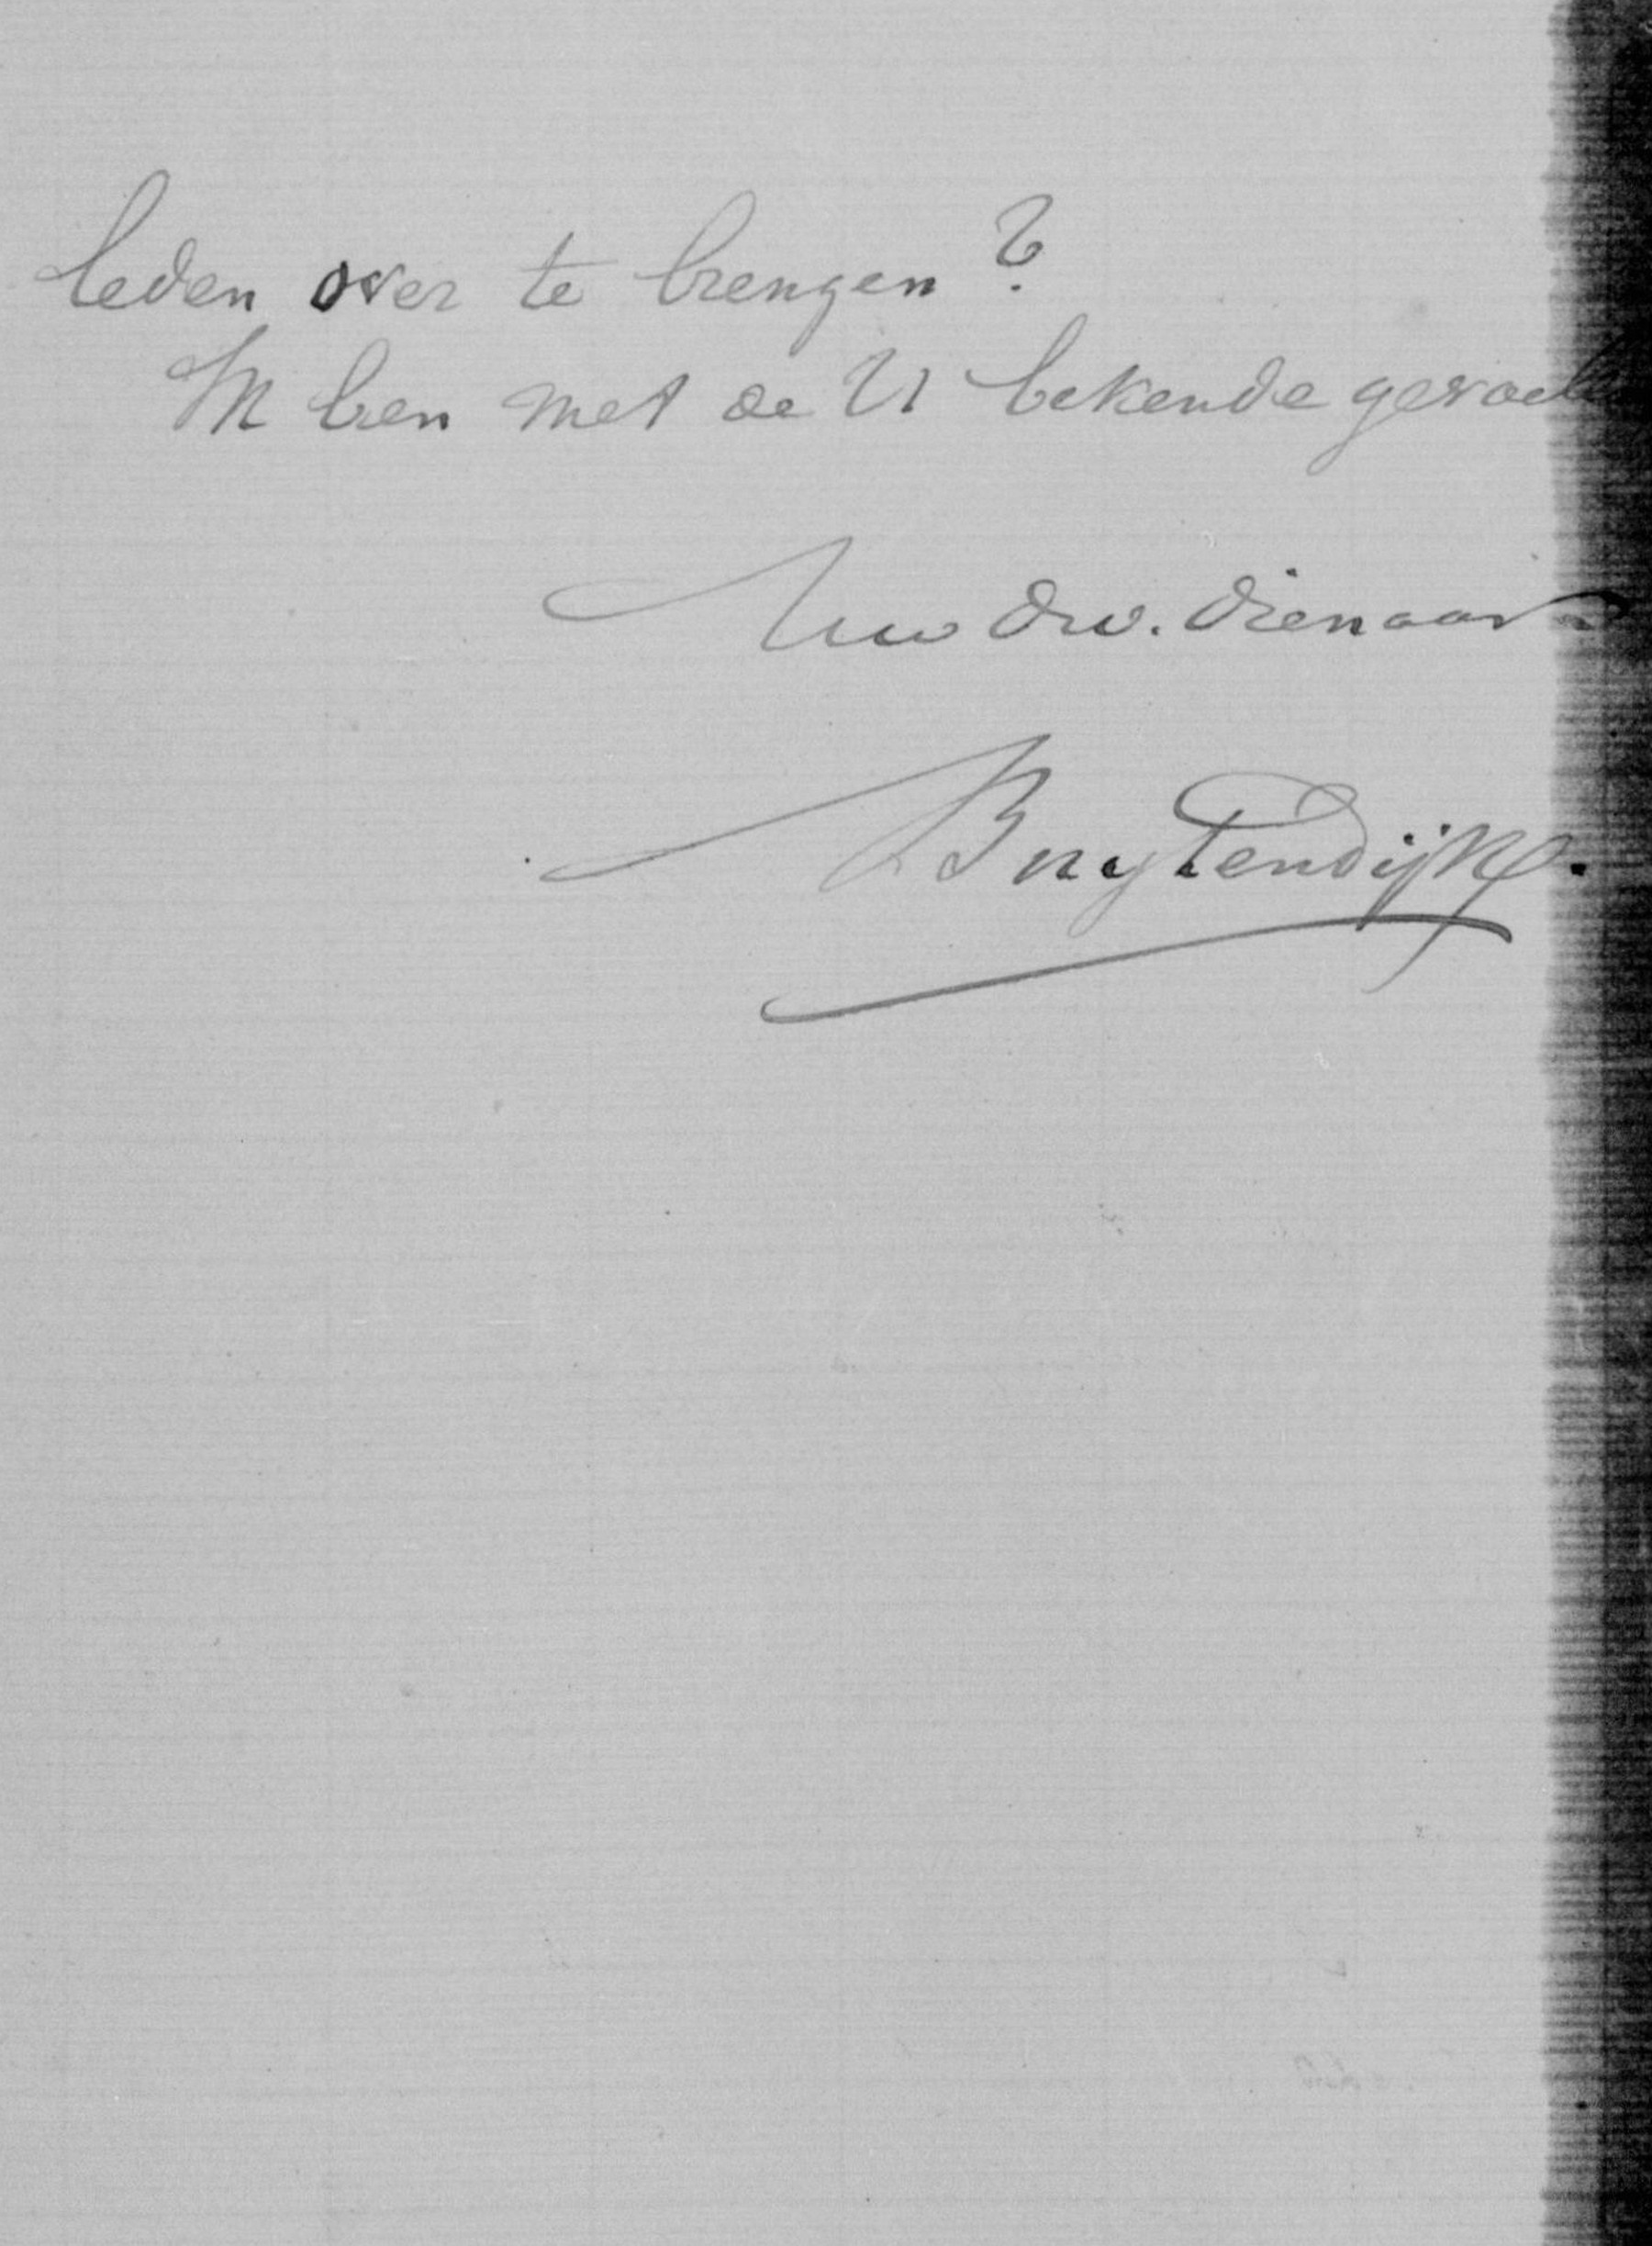 leden over te brengen?
Ik ben met de U bekende gevoel
Uw dw. dienaar
Buytendijk.